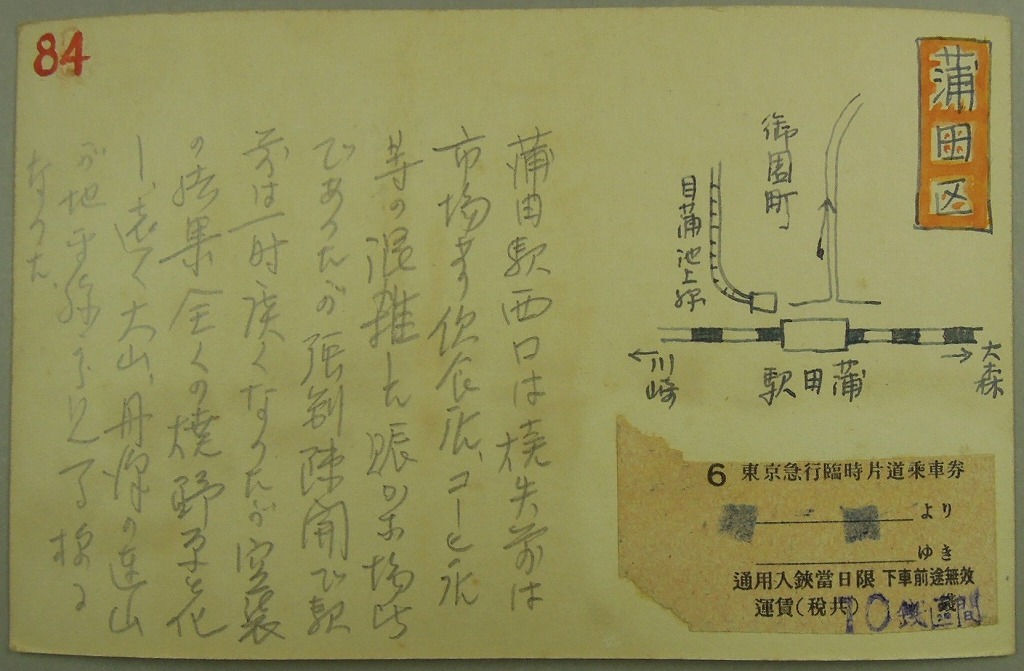 84
蒲田区
御園町
目蒲池上線
大森
蒲田駅
川崎
蒲田駅西口は焼失前は
市場 飲食店、コーヒ店
等の混雑した賑かな場所
であったが強制疎開で駅
前は一時広くなったが空襲
の結果全くの焼野原と化
し、遠く大山、丹沢の連山
が地平線に見える様に
なった。
6 東京急行臨時片道乗車券
より
ゆき
通用入鋏當日限 下車前途無效
運賃(税共) 10銭區間